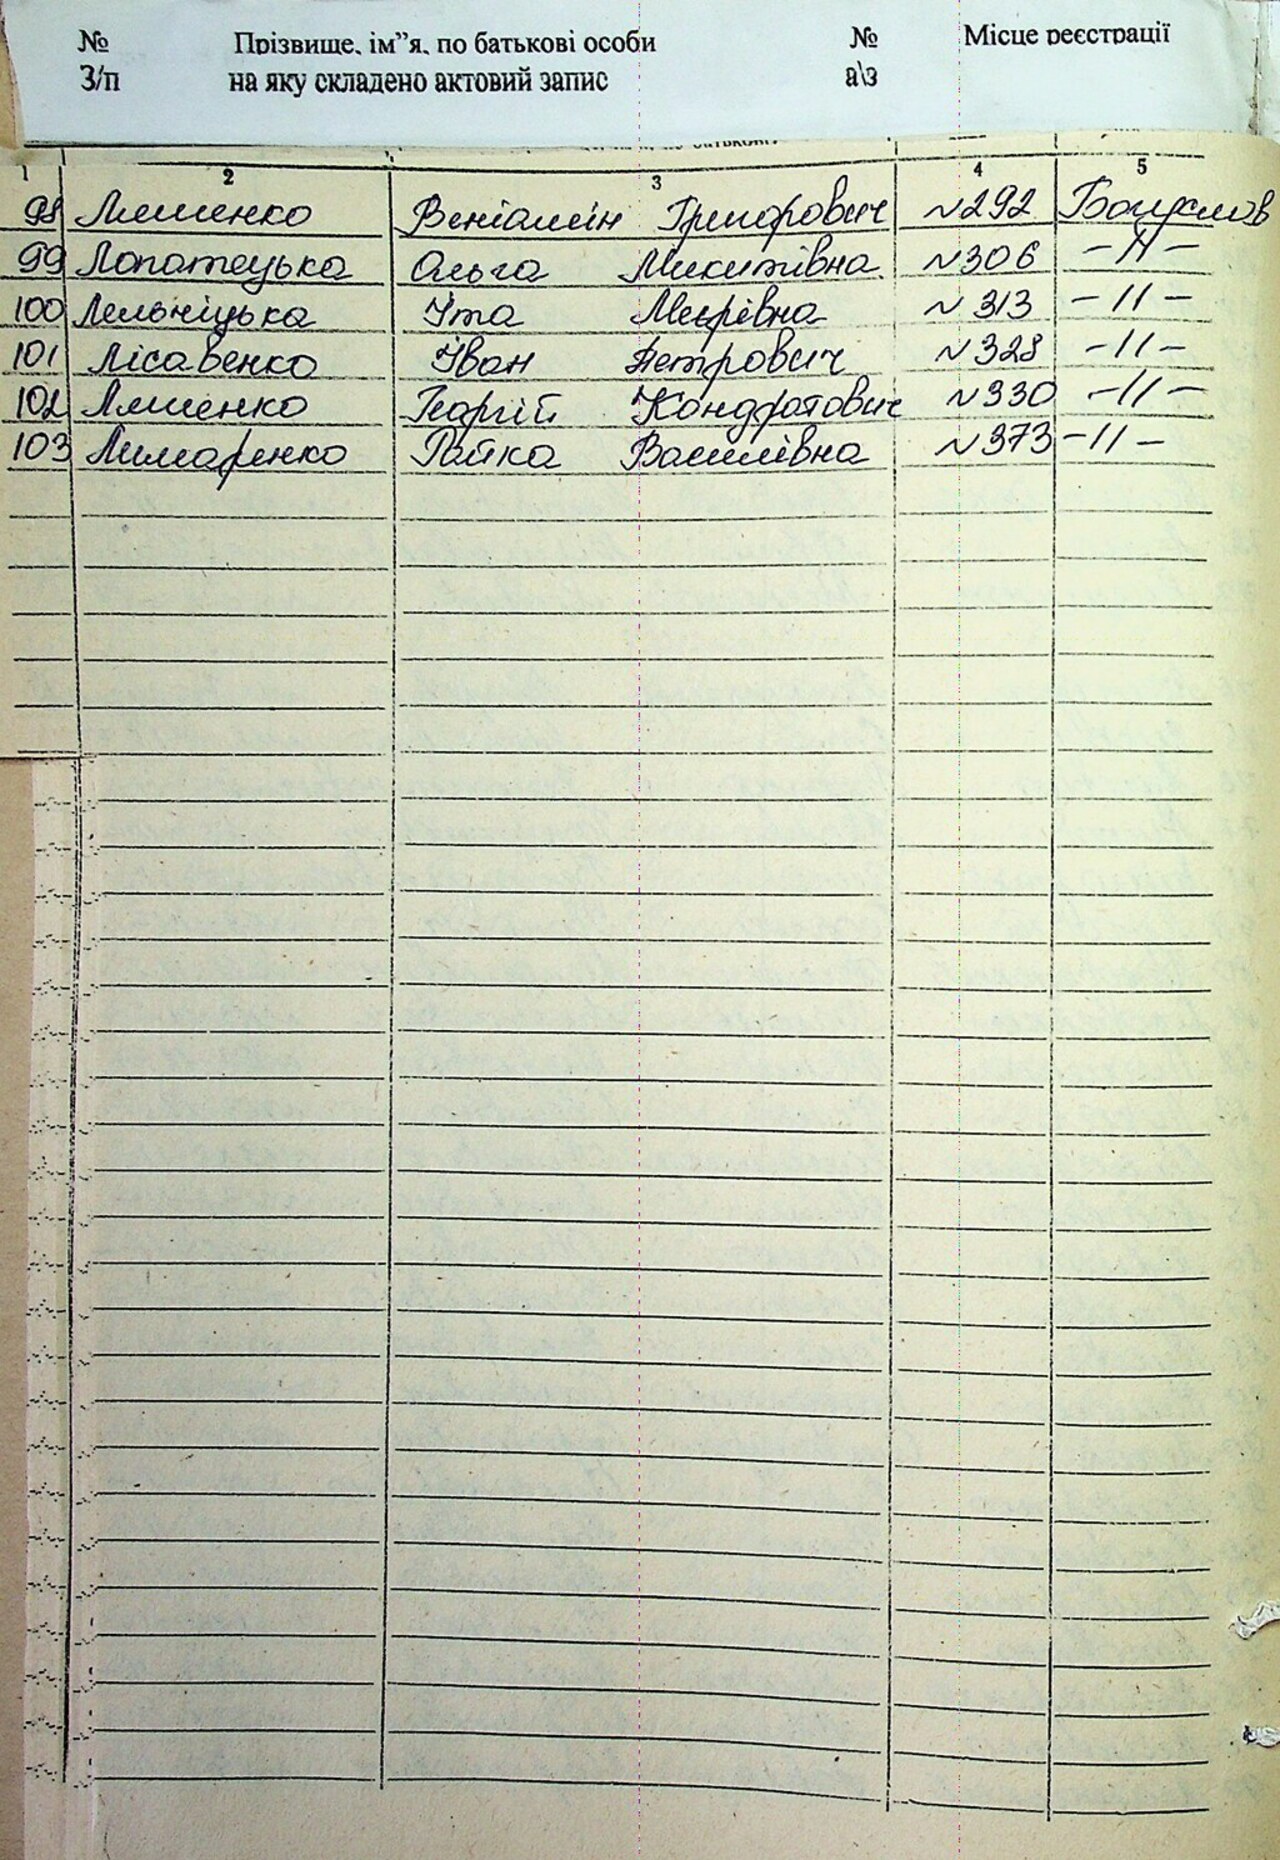 № Прізвище, ім”я, по батькові особи № Місце реєстрації
З/п на яку складено актовий запис а\з
1 2 3 4 5
98 Ляшенко Веніамін Григорович №292 Богуслав
99 Лопатецька Ольга Микитівна №306 -11-
100 Лельніцька Іта Меєрівна №313 -11-
101 Лісавенко Іван Петрович №328 -11-
102 Ляшенко Георгій Кондратович №330 -11-
103 Лимаренко Райка Василівна №373 -11-